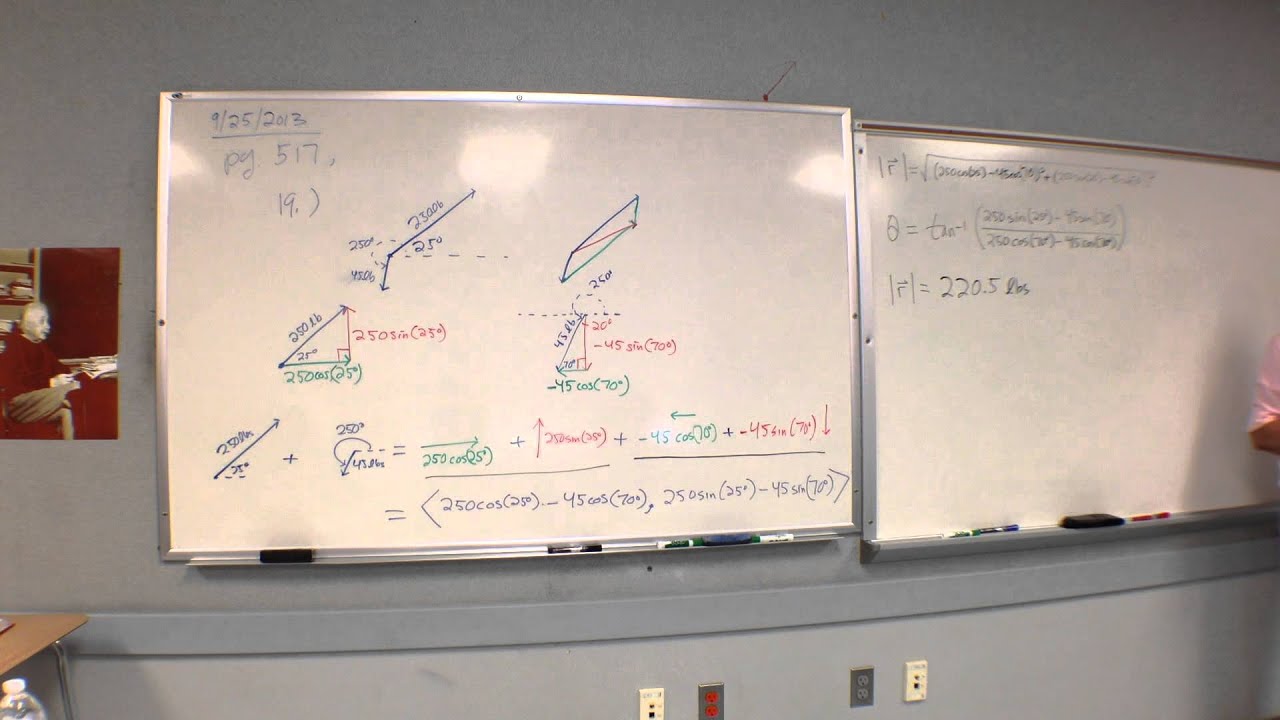 9/25/2013
pg. 517,
19.)
250lb
25°
250°
45lb
250lb
25°
250sin(25°)
250cos(25°)
250°
45lb
20°
-45sin(70°)
70°
-45cos(70°)
250lbs
25°
+
250°
45lbs
= 250cos(25°) + 250sin(25°) + -45cos(70°) + -45sin(70°)
= ⟨250cos(25°) - 45cos(70°), 250sin(25°) - 45sin(70°)⟩
|r⃗| = √(250cos25) - 45cos(70))² +
θ = tan⁻¹ (250sin(25°) - 45sin(70°) / 250cos(70°) - 45cos(70°))
|r⃗| = 220.5 lbs